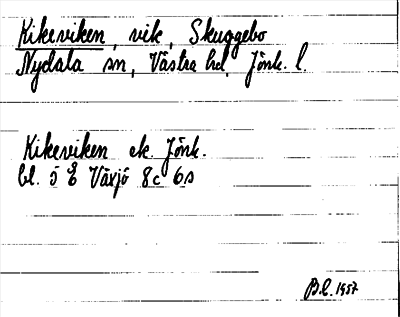 Kikeviken, vik, Skuggebo
Nydala sn, Västra hd, Jönk. l.
Kikeviken ek. Jönk.
bl. 5 E Växjö 8c 6s
B.E. 1957